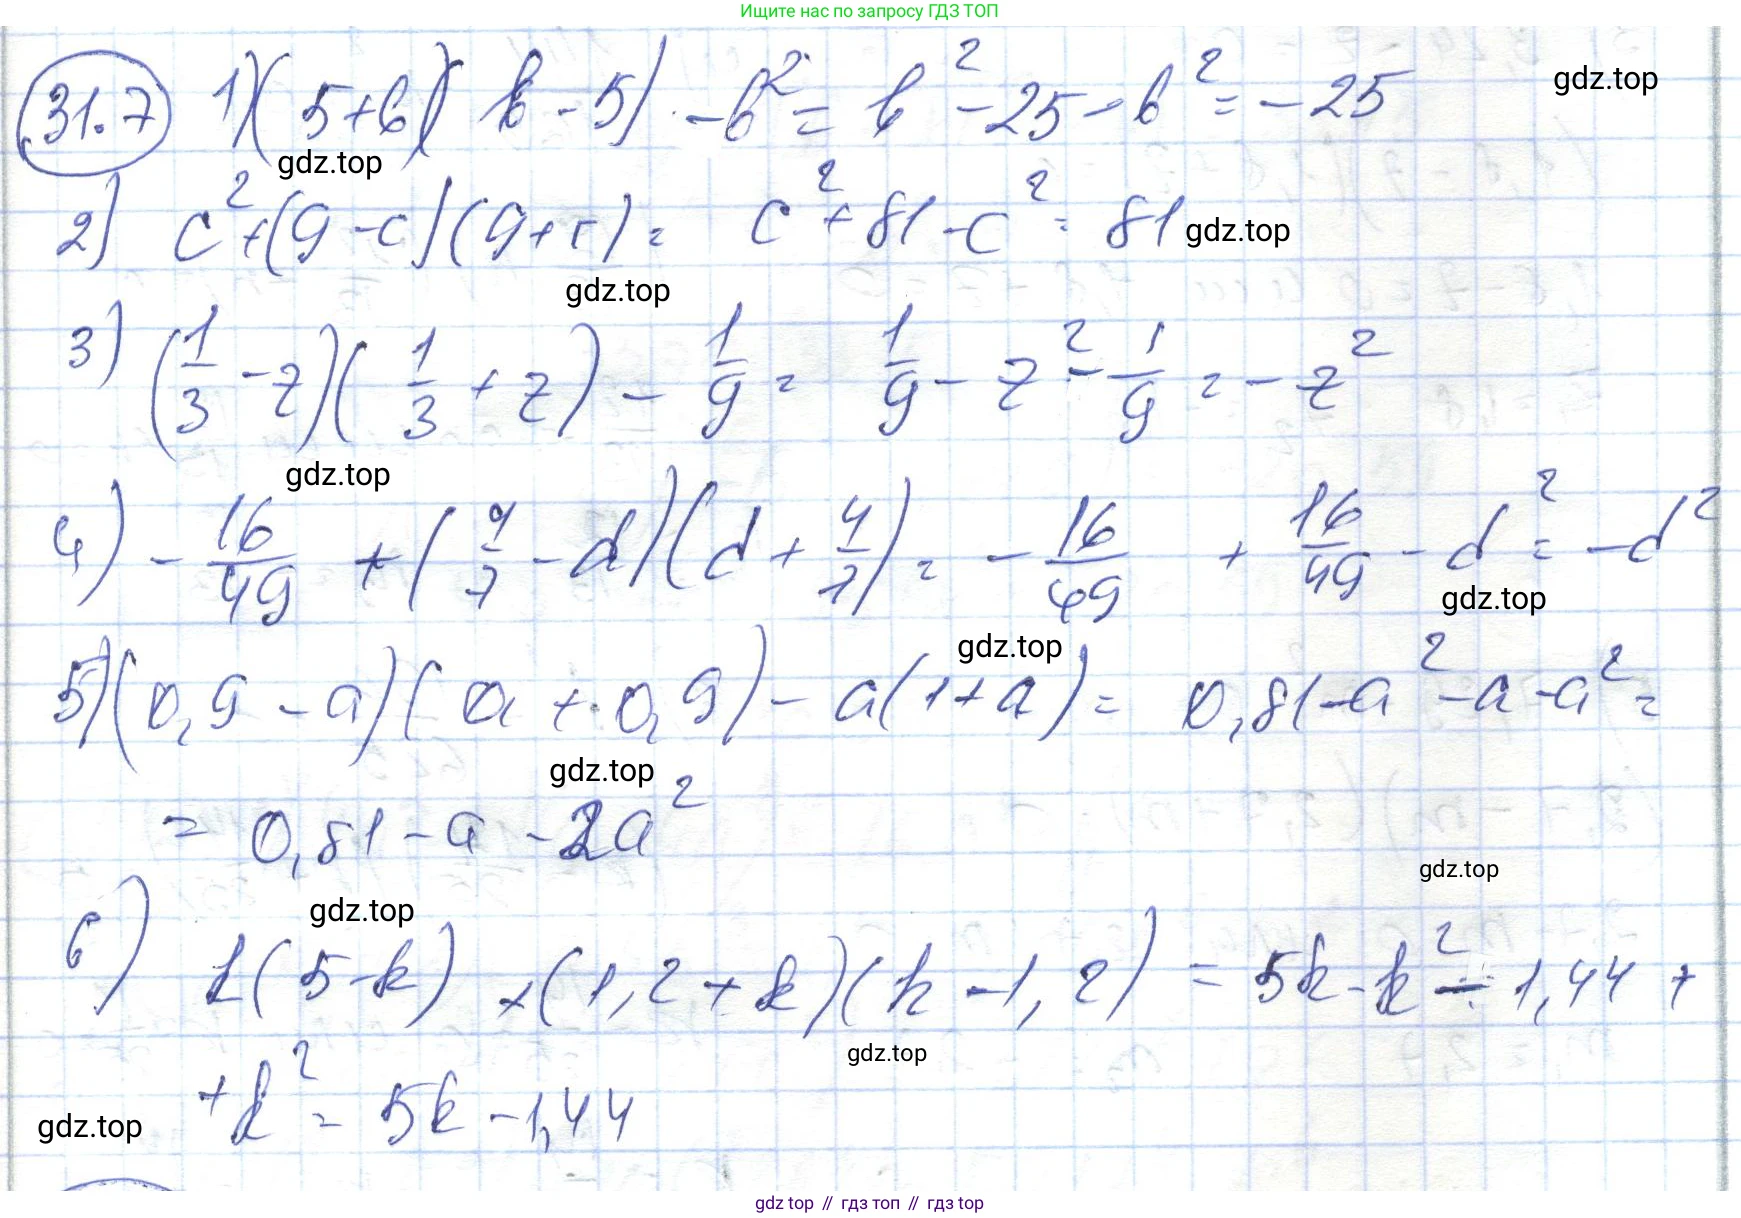 Ищите нас по запросу ГДЗ ТОП
31.7 1) (5+b)(b-5) -b² = b² -25 - b² = -25
gdz.top
gdz.top
2) c² + (9-c)(9+c) = c² + 81 - c² = 81
gdz.top
gdz.top
3) (1/3 - z)(1/3 + z) - 1/9 = 1/9 - z² - 1/9 = - z²
gdz.top
4) - 16/49 + (4/7 - d)(d + 4/7) = - 16/49 + 16/49 - d² = -d²
gdz.top
gdz.top
5) (0,9 - a)(a + 0,9) - a(1+a) = 0,81 - a² - a - a² =
gdz.top
= 0,81 - a - 2a²
gdz.top
gdz.top
6) k(5-k) + (1,2 + k)(k - 1,2) = 5k - k² - 1,44 +
gdz.top
+ k² = 5k - 1,44
gdz.top
gdz top // гдз топ // гдз top